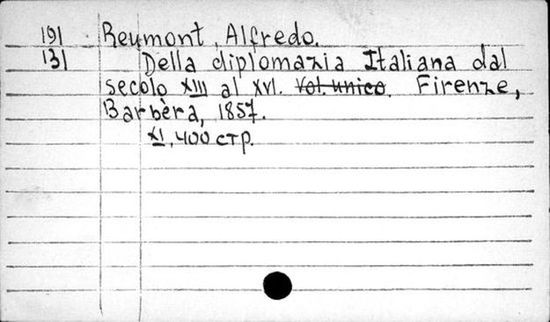 191 Reumont, Alfredo.
131 Della diplomazia Italiana dal
secolo XIII al XVI. Vol. unico. Firenze,
Barbèra, 1857.
XI, 400 стр.